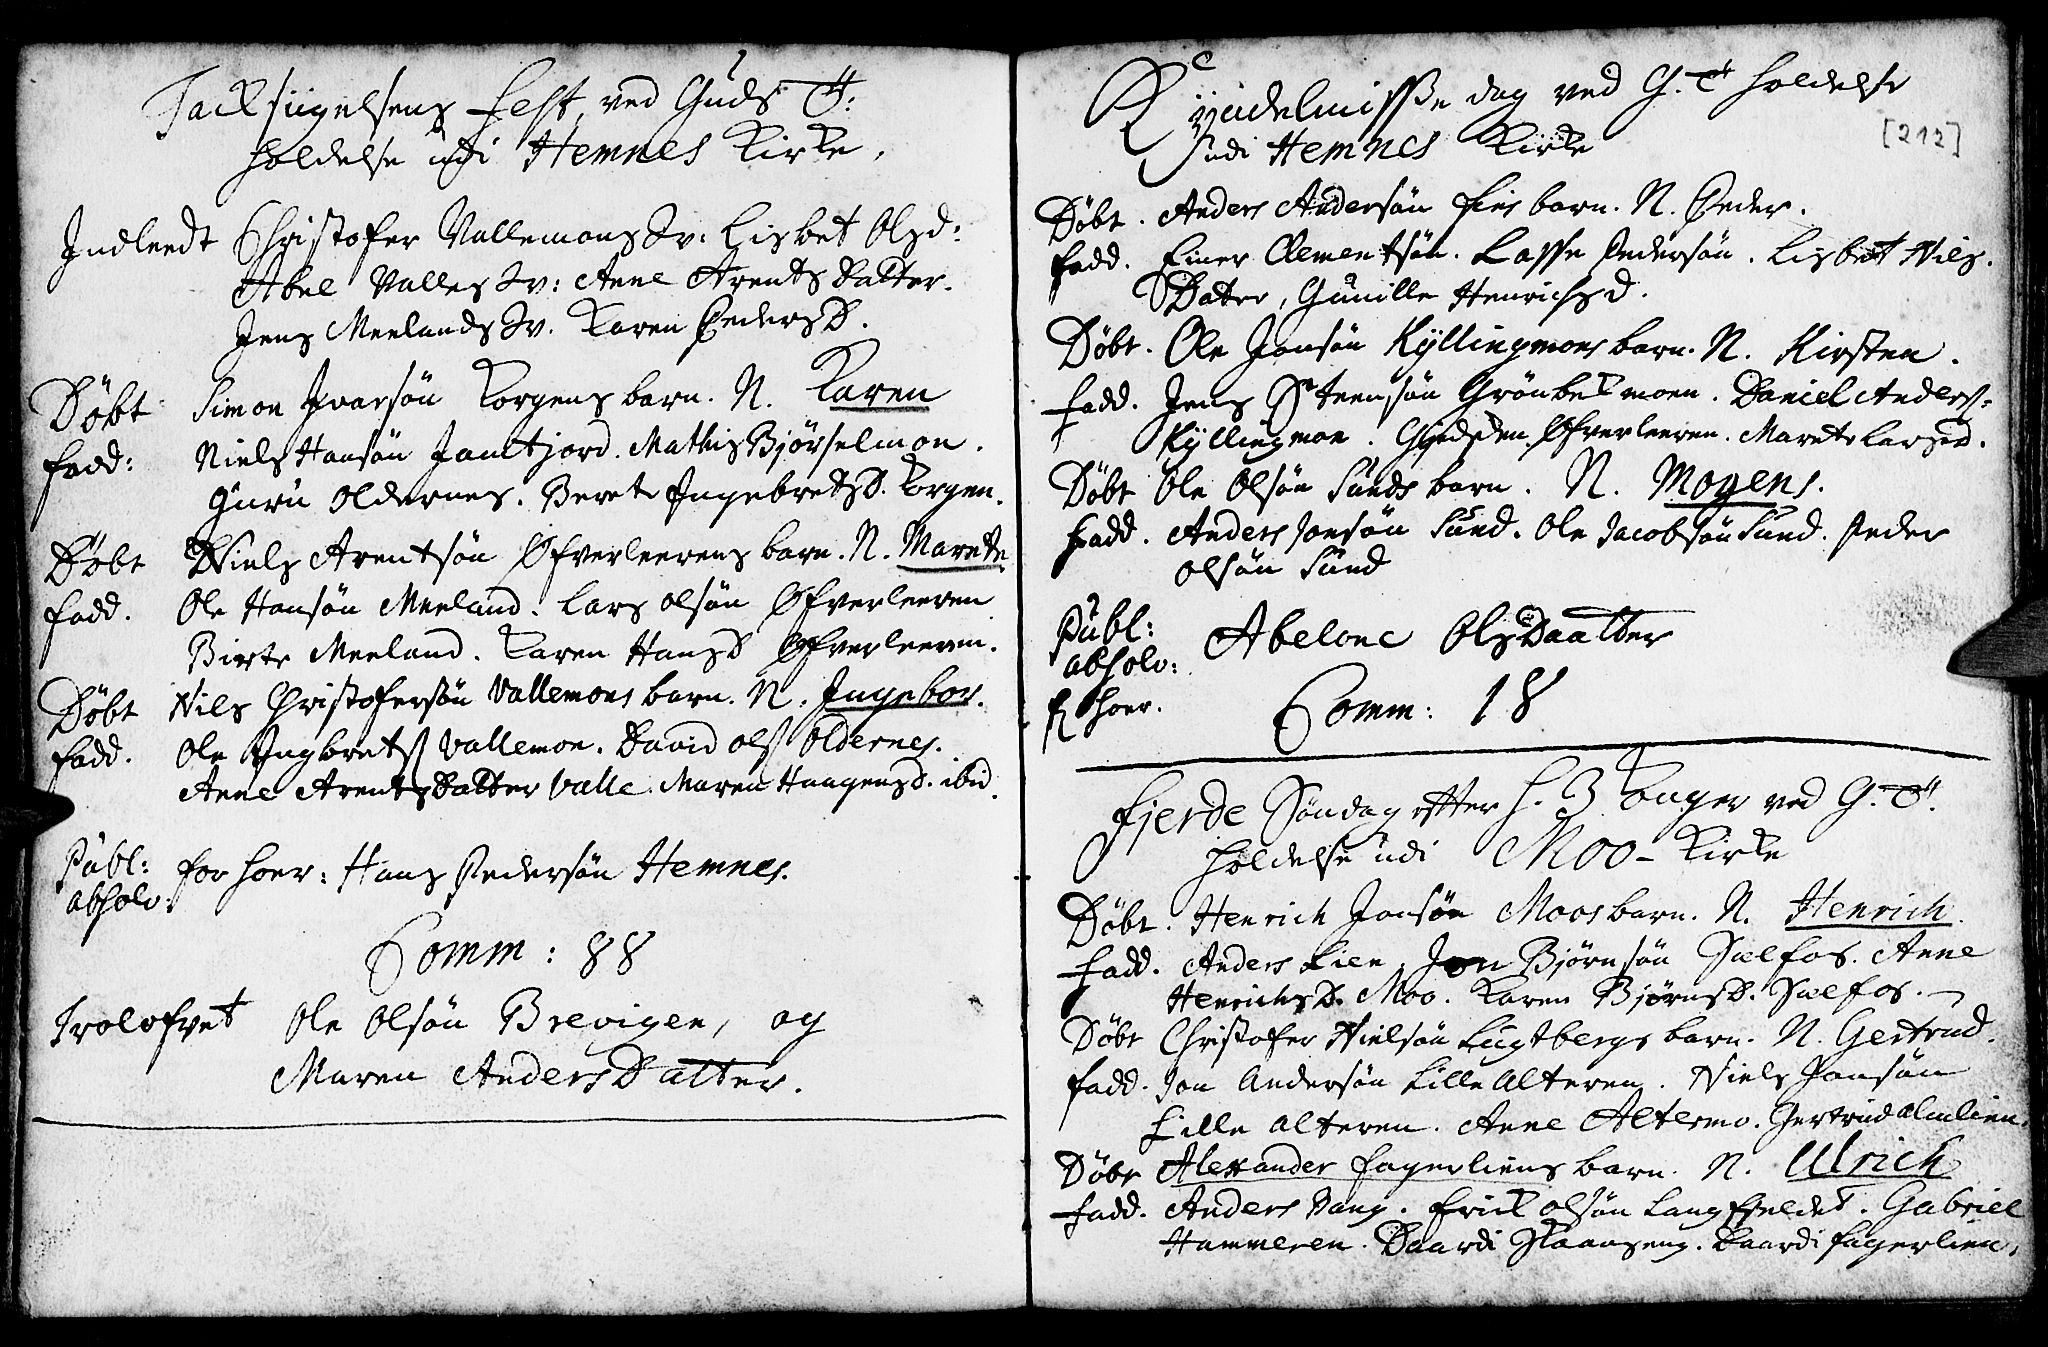 Tacksiigelsens Fest, ved Guds T:
holdelse udi Hemnes Kirke.
Indleedt Christofer Vallemons Qv: Lisbet Olsd:
Abel Valles Qv: Anne Arents Datter.
Jens Meelands Qv. Karen PedersD.
Döbt Simon Ivarsön Korgens barn. N. Karen
fadd: Niels Hansön Jamtjord. Mathis Bjørselmon.
Guru Oldernes. Berete IngebretsD. Korgen.
Döbt Niels Arentsön Øfverleerens barn. N. Marete
fadd. Ole Hansön Meeland. Lars olsön Øfverleeren
Birte Meeland. Karen HansD Øfverleeren.
Döbt Nils Christofersön Vallemons barn. N. Ingebor.
fadd. Ole Ingbrets Vallemon. David ols Oldernes.
Anne Arents Datter Valle. Maren Haagensd. ibid.
Publ: for hoer: Hans Pedersön Hemnes.
absolv:
Comm: 88
Trolofvet Ole Olsön Brevigen, og
Maren Anders Datter.
Kyndelmisse dag ved G. T holdelse
udi Hemnes Kirke
[212]
Döbt. Anders Andersön Fins barn. N. Peder.
fadd. Einer Clementsön. Lasse Pedersön. Lisbet Nils.
Datter, Gunille Henrichsd.
Döbt. Ole Jonsön Kyllingmons barn. N. Kirsten.
fadd. Jens Steensön Grönbekmoen. Daniel Anders:
Kyllingmon. Øfverleeren. Marete Larsd.
Döbt Ole Olsön Sunds barn. N. Mogens.
fadd. Anders Jonsön Sund. Ole Jacobsön Sund. Peder
olsön Sund
Publ: Abelone Olsdaatter
absolv:
f hoer. Comm: 18
Fjerde Söndag efter H. 3 Konger ved G. T.
holdelse udi Moo-Kirke
Döbt. Henrich Jonsön Moos barn. N. Henrich.
fadd. Anders Lien. Jon Bjørnsön Sælfos. Anne
HenrichsD. Moo. Karen BjørnsD. Sælfos.
Döbt Christofer Nielsön Lugtbergs barn. N. Gertrud.
fadd. Jon Andersön Lille Alteren. Niels Jonsön
Lille Alteren. Anne Altermo. Gertrud Almlien.
Döbt Alexander Fagerliens barn. N. Ulrich
fadd. Anders Vang. Erick olsön Langfieldet. Gabriel
Hammeren. Daardi Skaanseng. Daardi Fagerlien.